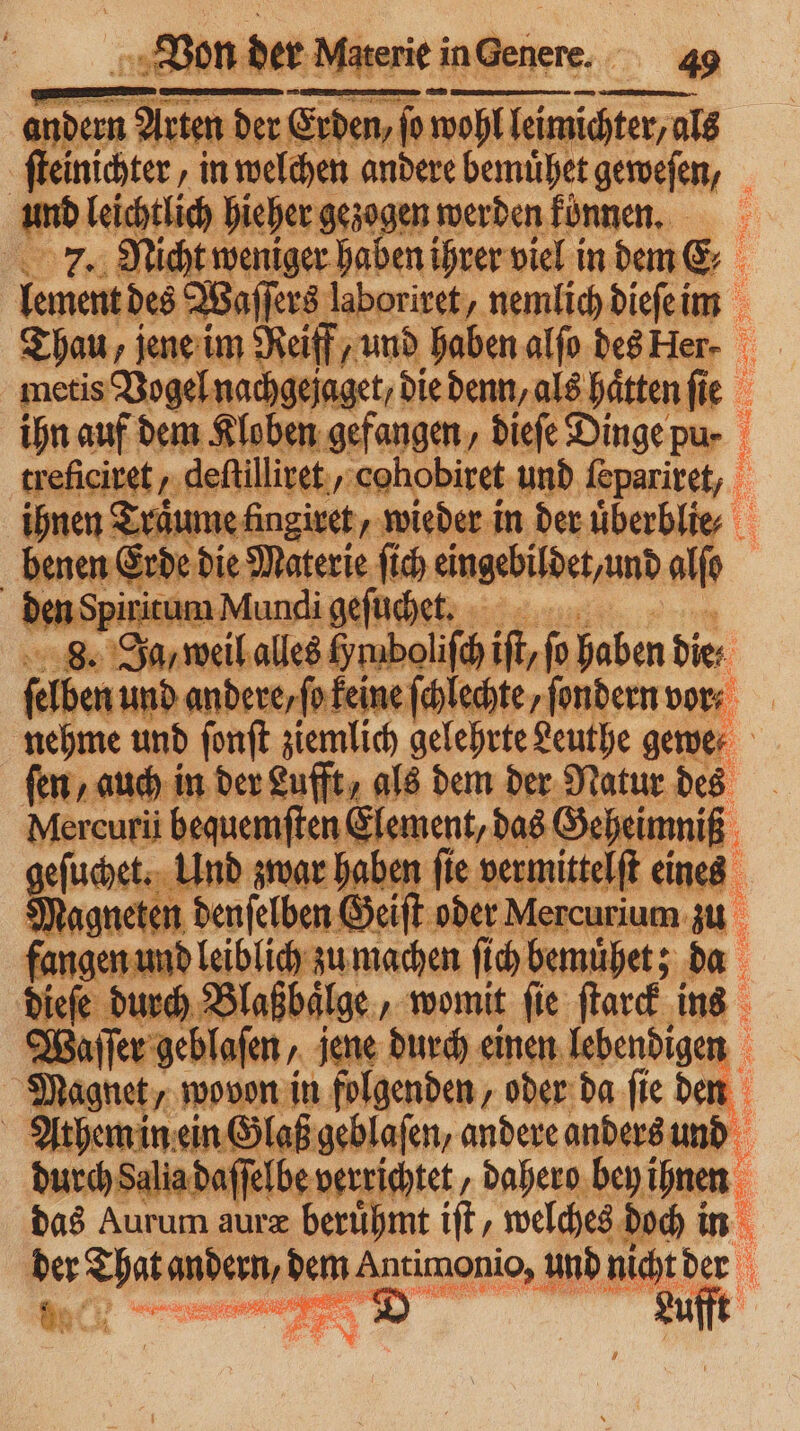 Von der Materie in Genere. 49
andern Arten der Erden, ſo wohl leimichter, als
ſteinichter, in welchen andere bemuͤhet geweſen,
und leichtlich hieher gezogen werden koͤnnen.
7. Nicht weniger haben ihrer viel in dem E⸗
lement des Waſſers laboriret, nemlich dieſe im
Thau, jene im Reiff, und haben alſo des Her-
metis Vogel nachgejaget, die denn, als haͤtten ſie
ihn auf dem Kloben gefangen, dieſe Dinge pu-
treficiret, deſtilliret, cohobiret und ſepariret,
ihnen Traͤume fingiret, wieder in der uͤberblie⸗
benen Erde die Materie ſich eingebildet, und alſo
den Spiritum Mundi geſuchet.
8. Ja, weil alles ſymboliſch iſt, ſo haben die⸗
ſelben und andere, ſo keine ſchlechte, ſondern vor⸗
nehme und ſonſt ziemlich gelehrte Leuthe gewe⸗
ſen, auch in der Lufft, als dem der Natur des
Mercurii bequemſten Element, das Geheimniß
geſuchet. Und zwar haben ſie vermittelſt eines
Magneten denſelben Geiſt oder Mercurium zu
fangen und leiblich zu machen ſich bemuͤhet; da
dieſe durch Blaßbaͤlge, womit ſie ſtarck ins
Waſſer geblaſen, jene durch einen lebendigen
Magnet, wovon in folgenden, oder da ſie den
Athem in ein Glaß geblaſen, andere anders und
durch Salia daſſelbe verrichtet, dahero bey ihnen
das Aurum auræ beruͤhmt iſt, welches doch in
der That andern, dem Antimonio, und nicht der
D Lufft